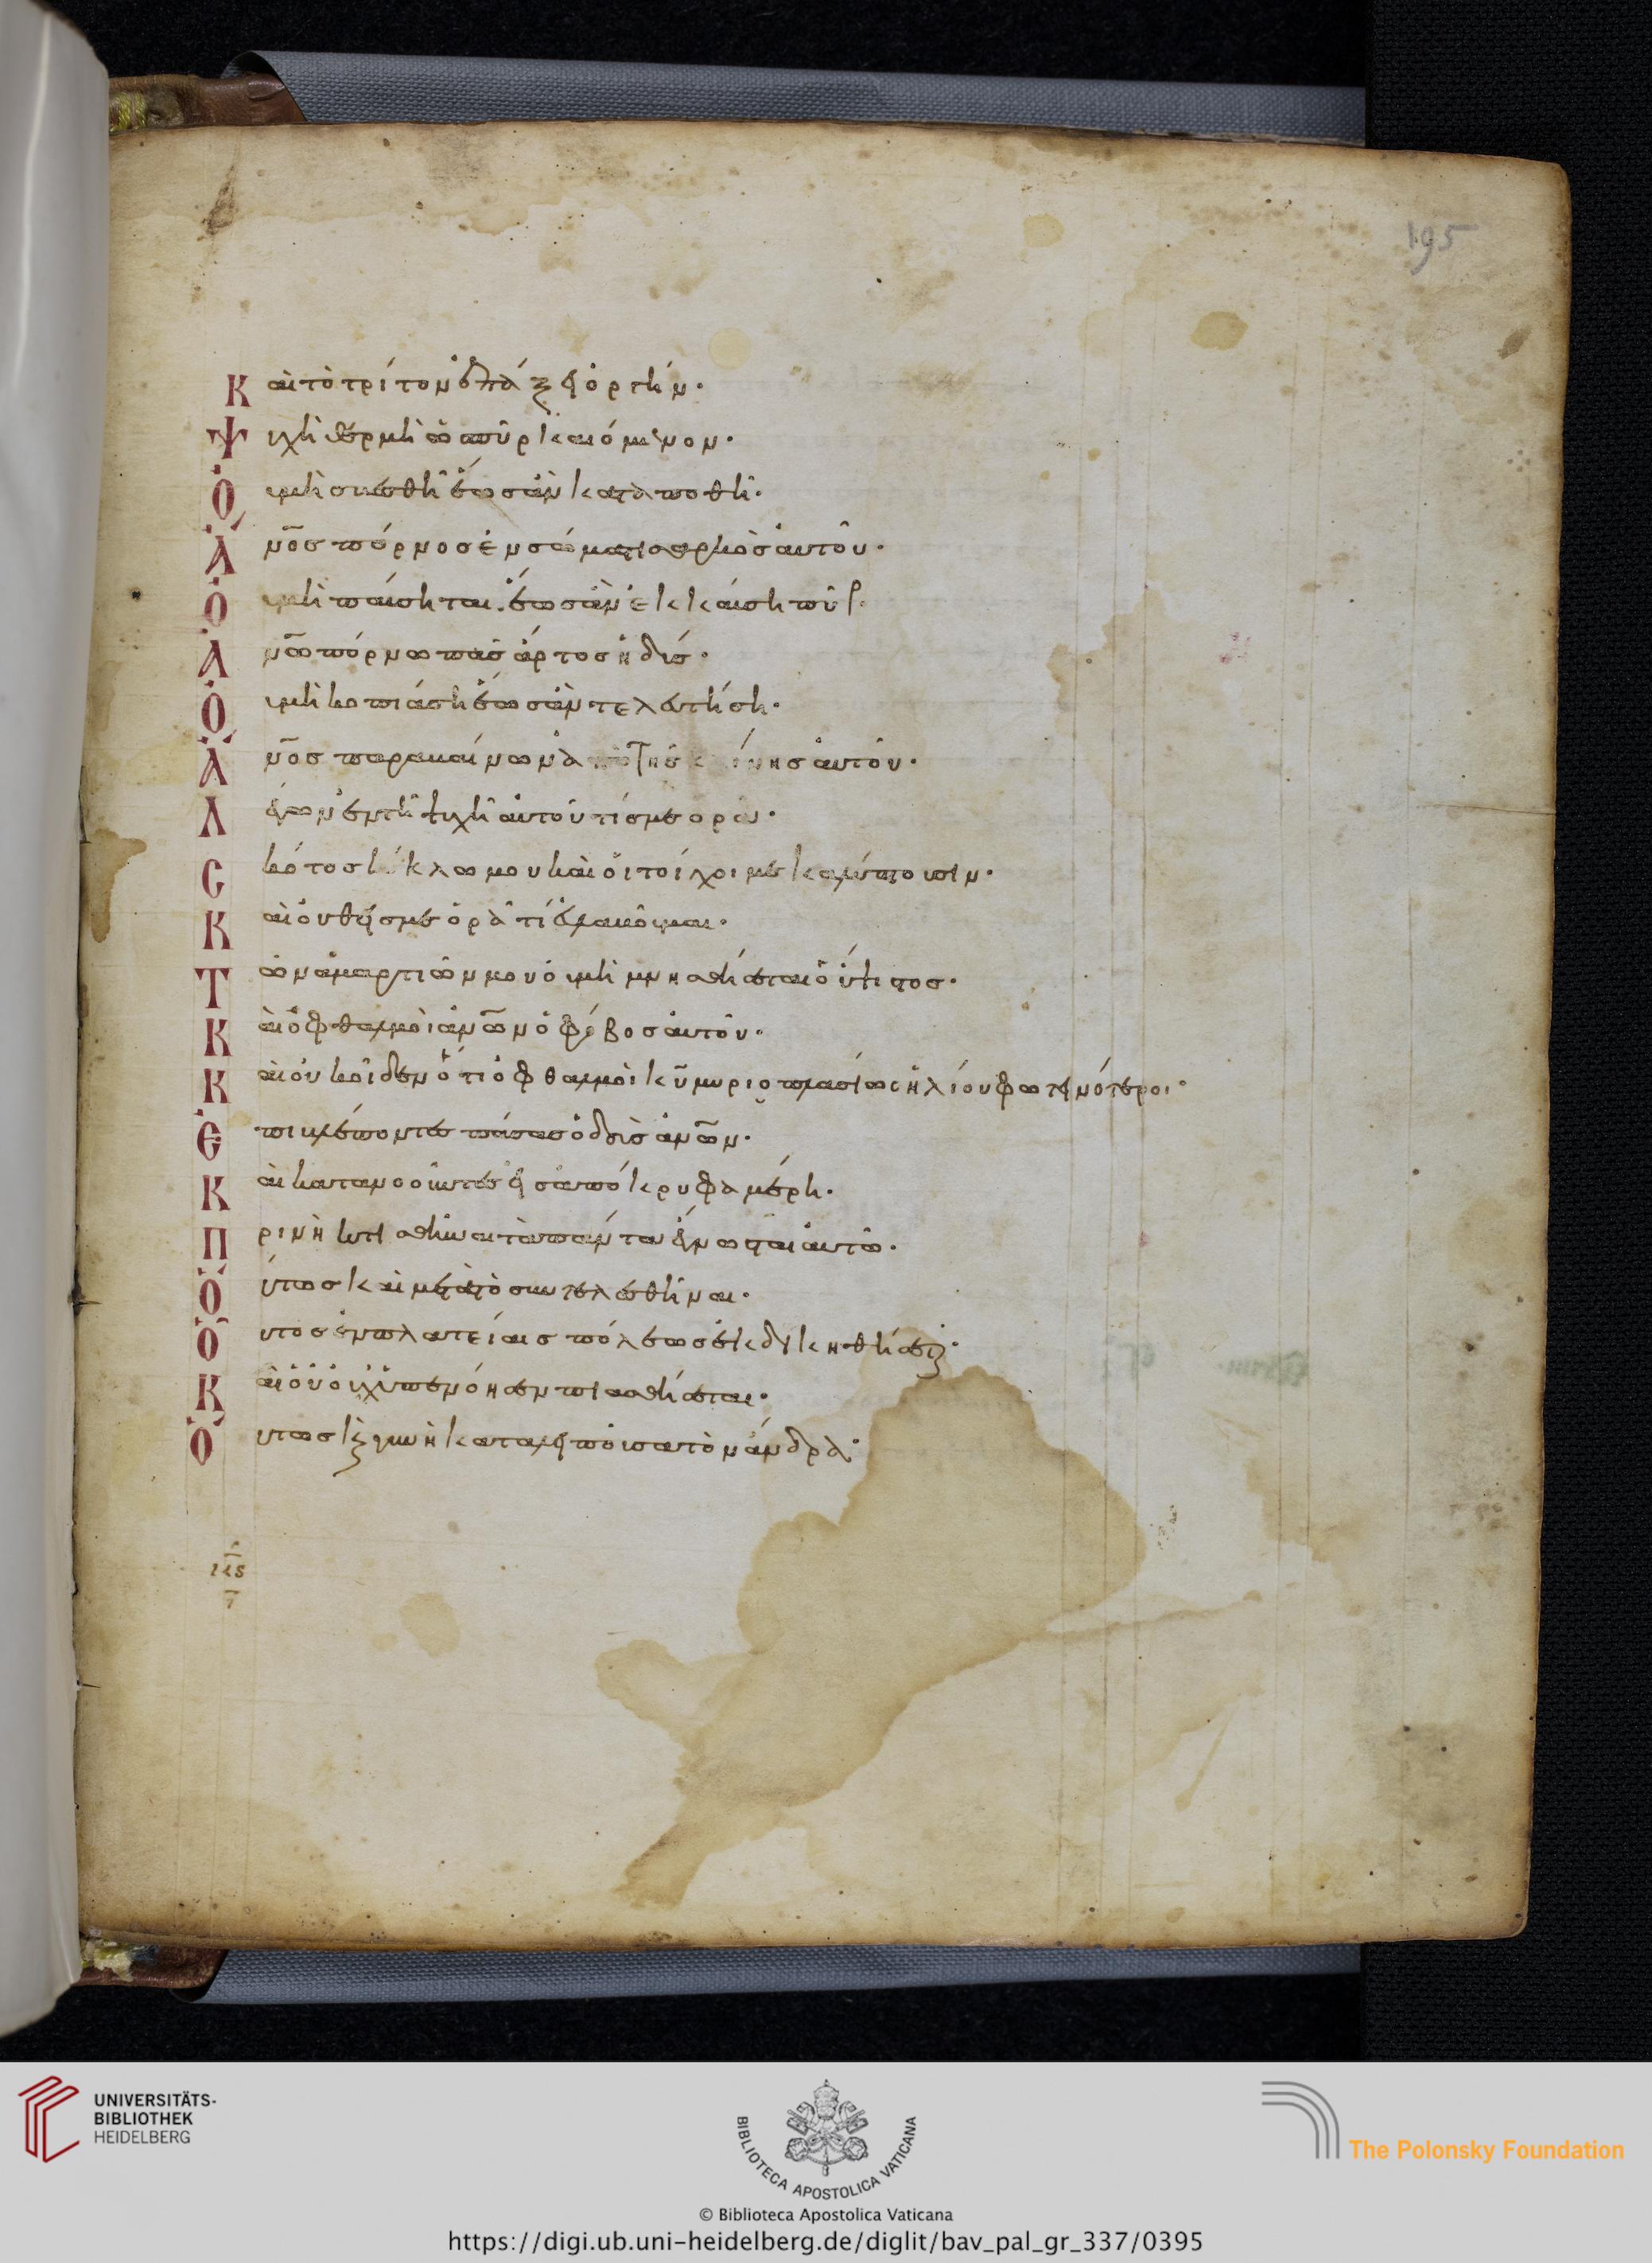 195
Καὶ τὸ τρίτον ἐπάξει ὀργήν·
Ψυχὴ θερμὴ ὡς πῦρ καιόμενον·
Οὐ μὴ σβεσθῇ ἕως ἂν καταποθῇ·
Ἄνος πόρνος ἐν σώματι σαρκὸς αὐτοῦ·
Οὐ μὴ παύσηται ἕως ἂν ἐκκαύσῃ πῦρ·
Ἄνω πόρνω πᾶς ἄρτος ἡδύς·
Οὐ μὴ κοπιάσῃ ἕως ἂν τελευτήσῃ·
Ἄνος παραβαίνων ἀπὸ τῆς κλίνης αὐτοῦ·
Λέγων ἐν τῇ ψυχῇ αὐτοῦ τίς με ὁρᾷ·
Σκότος κύκλω μου καὶ οἱ τοίχοι με καλύπτουσιν·
Καὶ οὐθείς με ὁρᾷ τί εὐλαβοῦμαι·
Τῶν ἁμαρτιῶν μου οὐ μὴ μνησθήσεται ὁ ὕψιστος·
Καὶ ὀφθαλμοὶ ἀνων ὁ φόβος αὐτοῦ·
Καὶ οὐκ οἶδεν ὅτι ὀφθαλμοὶ κυ μυριοπλασίως ἡλίου φωτεινότεροι·
Ἐπιβλέποντες πάσας ὁδοὺς ἀνων·
Καὶ κατανοοῦντες εἰς ἀπόκρυφα μέρη·
Πρινὴ κτισθῆναι τὰ πάντα ἔγνωσται αὐτῶ·
Οὕτως καὶ μετὰ τὸ συντελεσθῆναι·
Οὗτος ἐν πλατείαις πόλεως ἐκδικηθήσεται·
Καὶ οὗ οὐχ ὑπενόησεν πιασθήσεται·
Οὕτως καὶ γυνὴ καταλειποῦσα τὸν ἄνδρα·
UNIVERSITÄTS-
BIBLIOTHEK
HEIDELBERG
BIBLIOTECA APOSTOLICA VATICANA
The Polonsky Foundation
© Biblioteca Apostolica Vaticana
https://digi.ub.uni-heidelberg.de/diglit/bav_pal_gr_337/0395